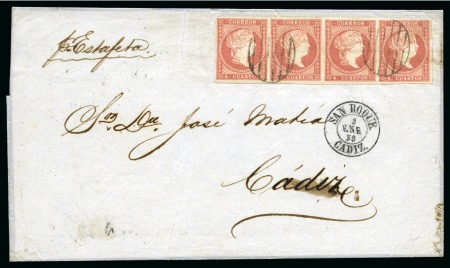 CORREOS CORREOS CORREOS CORREOS
4 CUARTOS 4 CUARTOS 4 CUARTOS 4 CUARTOS
p. Estafeta
Sor Dn José Matia
Cádiz
SAN ROQUE
2
ENE
58
CADIZ.